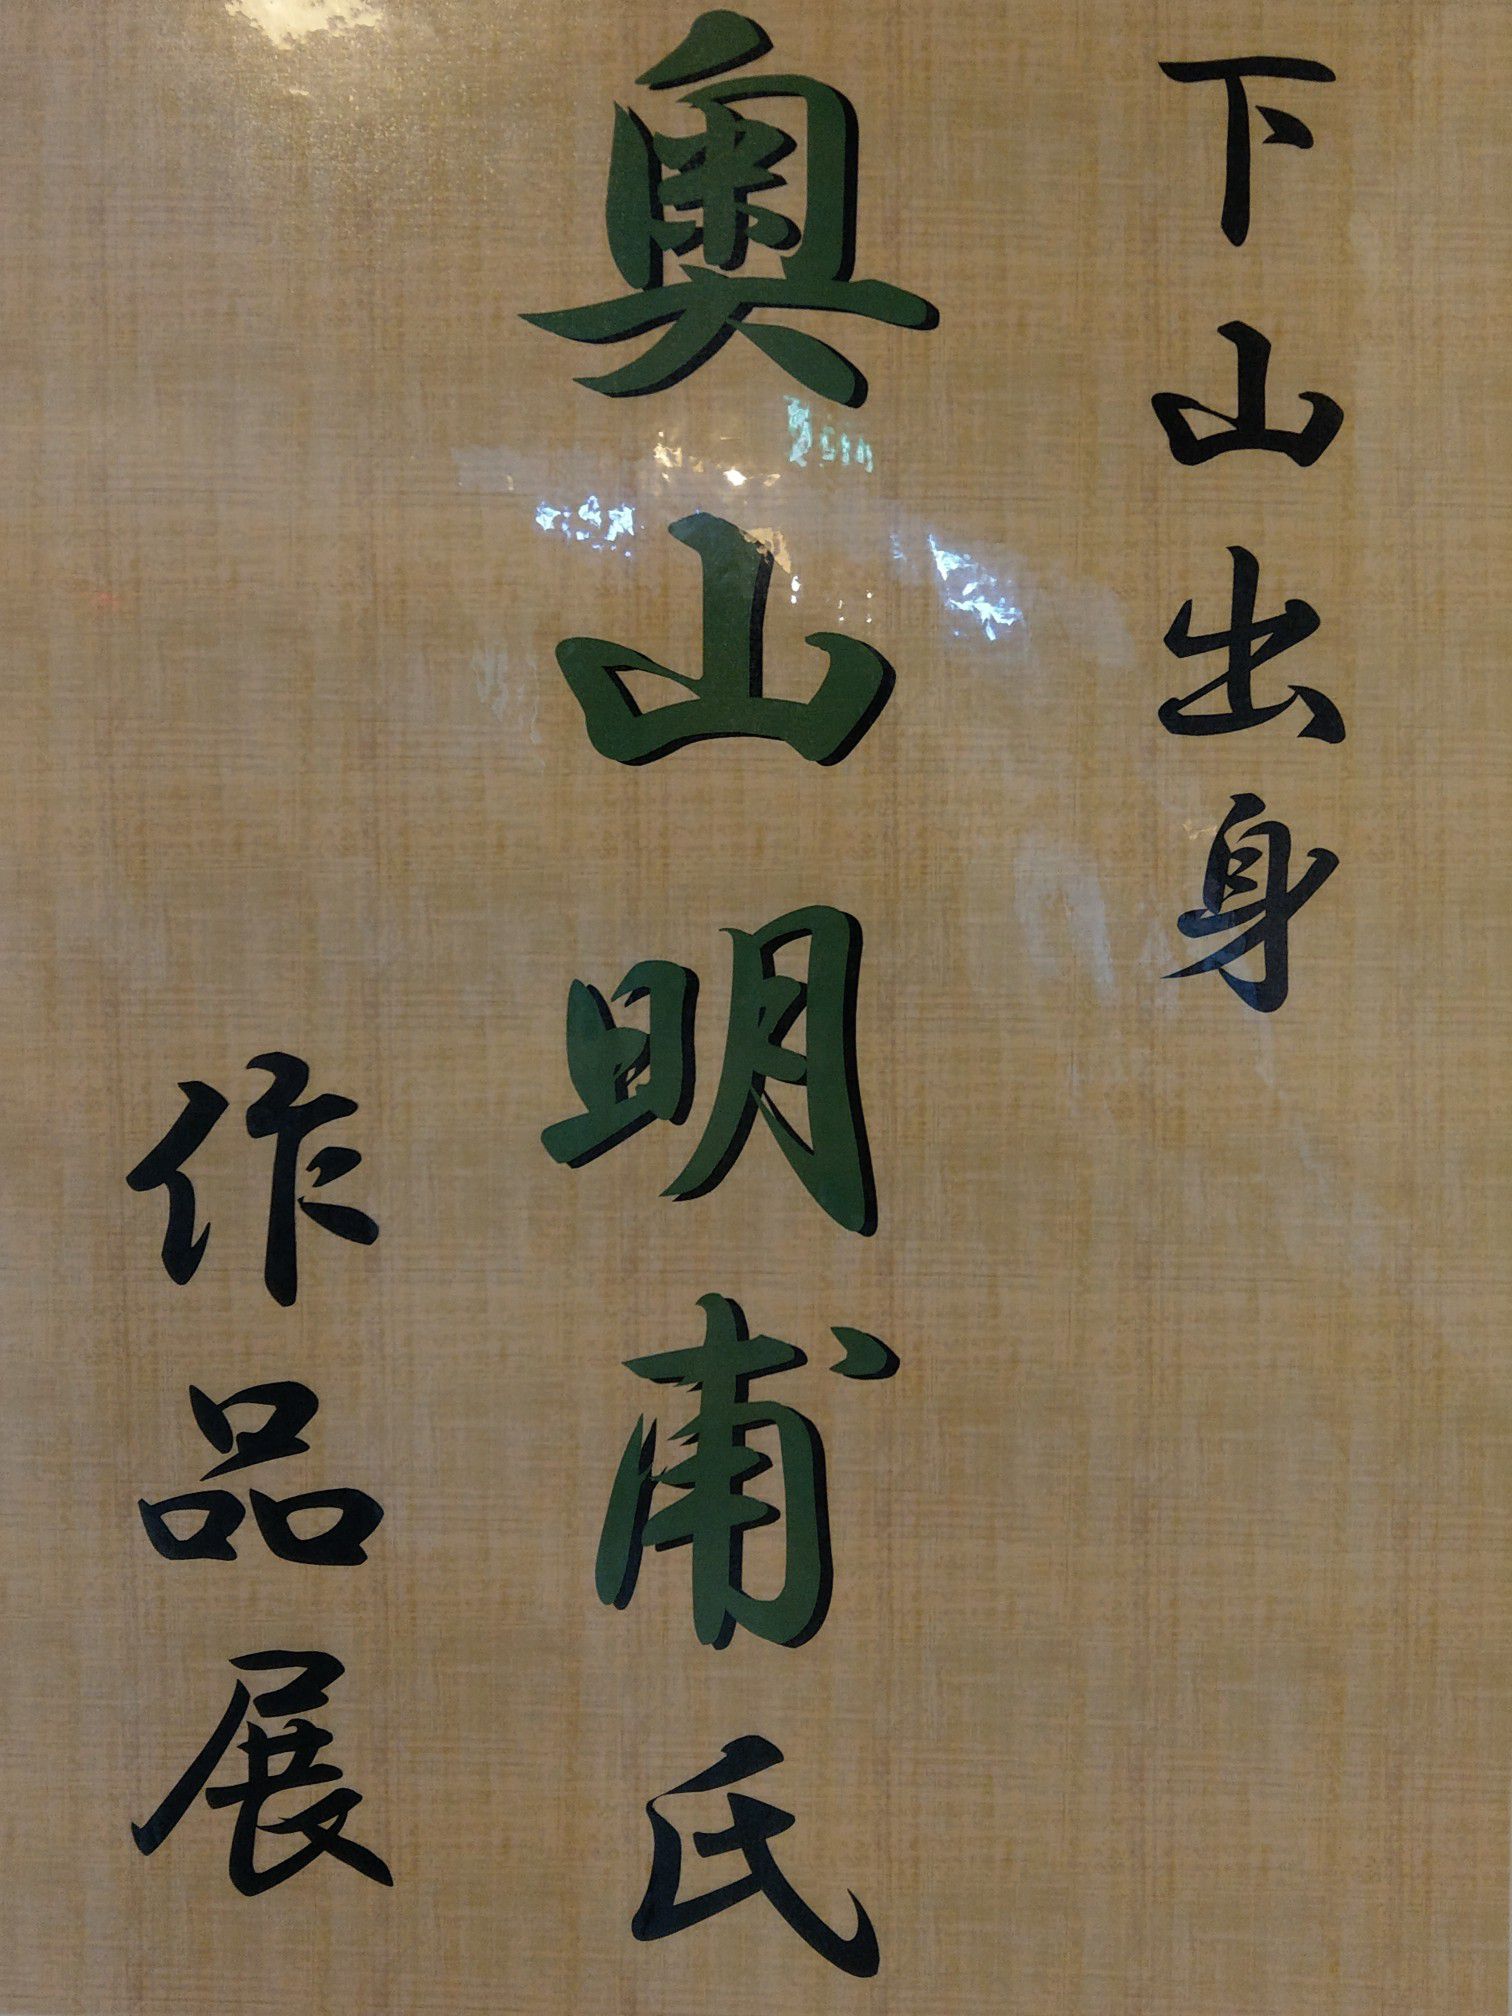 下山出身
奥山明甫氏
作品展